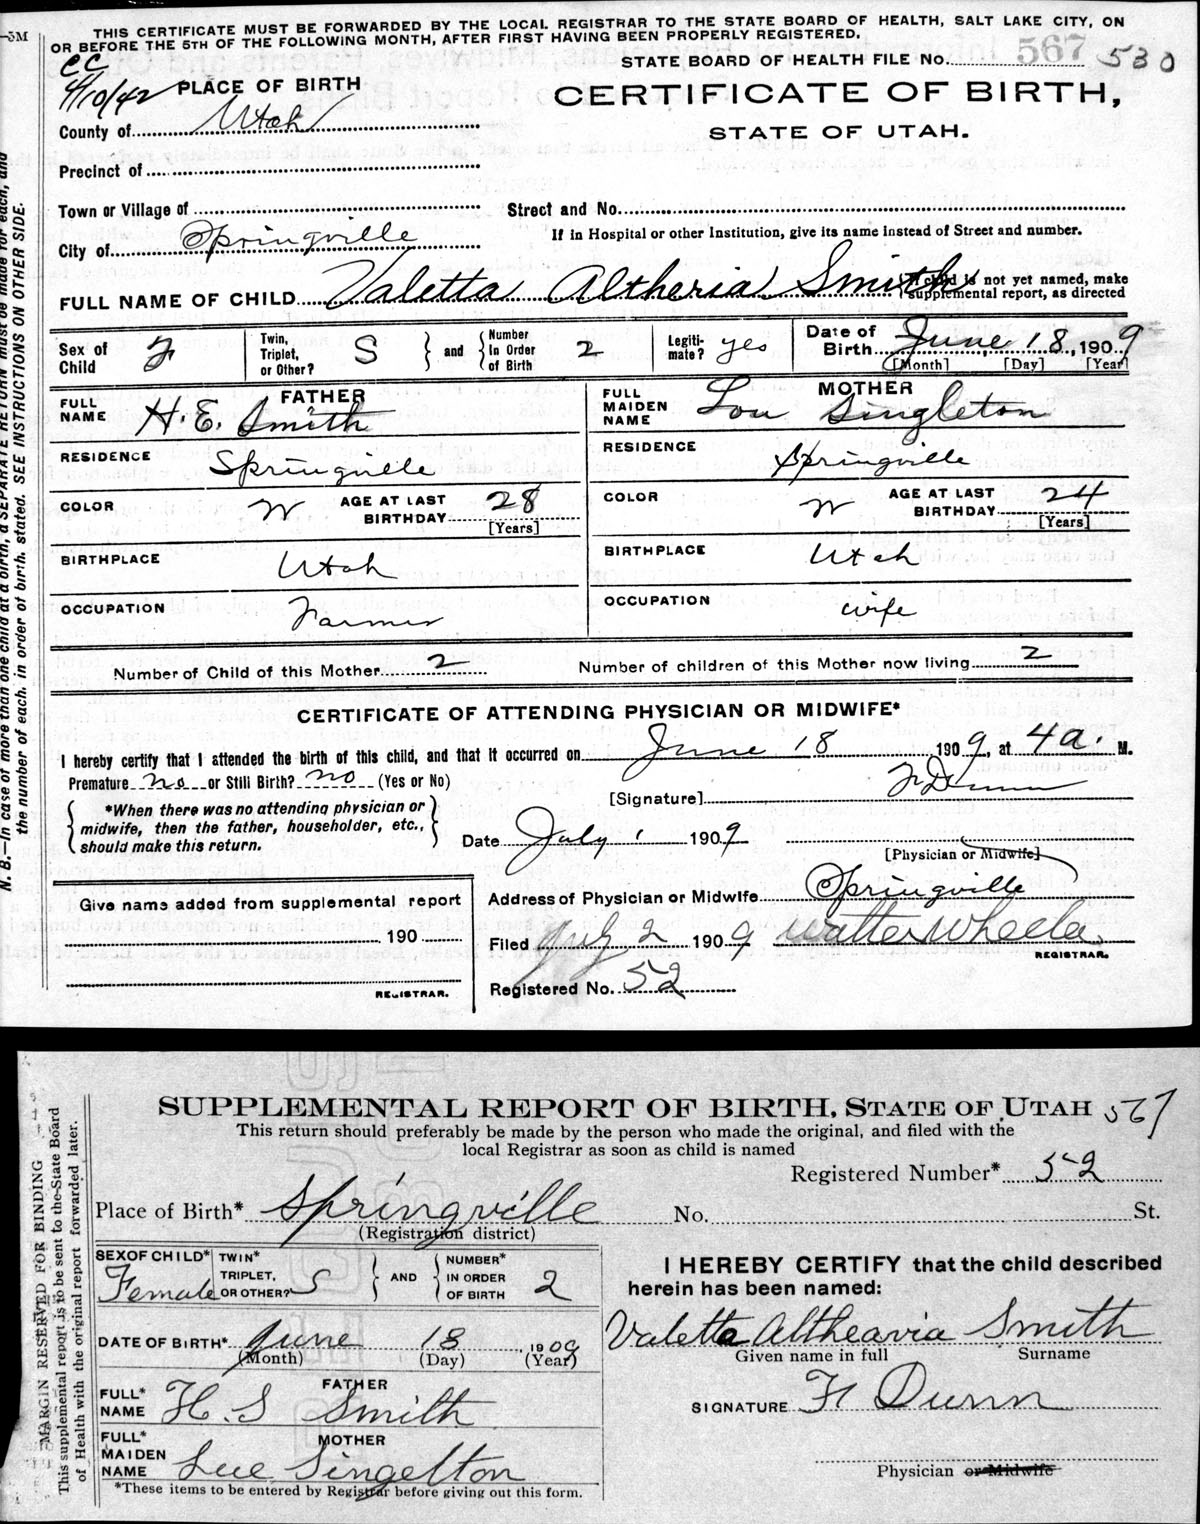 THIS CERTIFICATE MUST BE FORWARDED BY THE LOCAL REGISTRAR TO THE STATE BOARD OF HEALTH, SALT LAKE CITY, ON
OR BEFORE THE 5TH OF THE FOLLOWING MONTH, AFTER FIRST HAVING BEEN PROPERLY REGISTERED.
-3M
567
STATE BOARD OF HEALTH FILE No. 530
CC
4/10/42
PLACE OF BIRTH
CERTIFICATE OF BIRTH,
STATE OF UTAH.
County of Utah
Precinct of
Town or Village of
Street and No.
City of Springville
If in Hospital or other Institution, give its name instead of Street and number.
FULL NAME OF CHILD Valetta Altheria Smith
If child is not yet named, make
supplemental report, as directed
Sex of Child F
Twin, Triplet, or Other? S and Number In Order of Birth 2
Legitimate? yes
Date of Birth June 18, 1909
[Month] [Day] [Year]
FATHER
FULL NAME H. E. Smith
MOTHER
FULL MAIDEN NAME Lou Singleton
RESIDENCE Springville
RESIDENCE Springville
COLOR W AGE AT LAST BIRTHDAY 28 [Years]
COLOR W AGE AT LAST BIRTHDAY 24 [Years]
BIRTHPLACE Utah
BIRTHPLACE Utah
OCCUPATION Farmer
OCCUPATION wife
Number of Child of this Mother 2
Number of children of this Mother now living 2
CERTIFICATE OF ATTENDING PHYSICIAN OR MIDWIFE*
I hereby certify that I attended the birth of this child, and that it occurred on June 18 1909, at 4 a. M.
Premature no or Still Birth? no (Yes or No)
*When there was no attending physician or
midwife, then the father, householder, etc.,
should make this return.
[Signature] Fr Dunn
Date July 1 1909
[Physician or Midwife]
Address of Physician or Midwife Springville
Give name added from supplemental report
190
REGISTRAR.
Filed July 2 1909 Walter Wheeler
REGISTRAR.
Registered No. 52
N. B.—In case of more than one child at a birth, a SEPARATE RETURN must be made for each, and
the number of each, in order of birth, stated. SEE INSTRUCTIONS ON OTHER SIDE.
SUPPLEMENTAL REPORT OF BIRTH, STATE OF UTAH 567
This return should preferably be made by the person who made the original, and filed with the
local Registrar as soon as child is named
Registered Number* 52
Place of Birth* Springville No. St.
(Registration district)
SEX OF CHILD* Female
TWIN* TRIPLET, OR OTHER? S AND NUMBER* IN ORDER OF BIRTH 2
DATE OF BIRTH* June 18, 1909
(Month) (Day) (Year)
FATHER
FULL* NAME H. S Smith
MOTHER
FULL* MAIDEN NAME Lue Singelton
*These items to be entered by Registrar before giving out this form.
I HEREBY CERTIFY that the child described
herein has been named:
Valetta Altheavia Smith
Given name in full Surname
SIGNATURE Fr Dunn
Physician or Midwife
MARGIN RESERVED FOR BINDING
This supplemental report is to be sent to the State Board
of Health with the original report forwarded later.